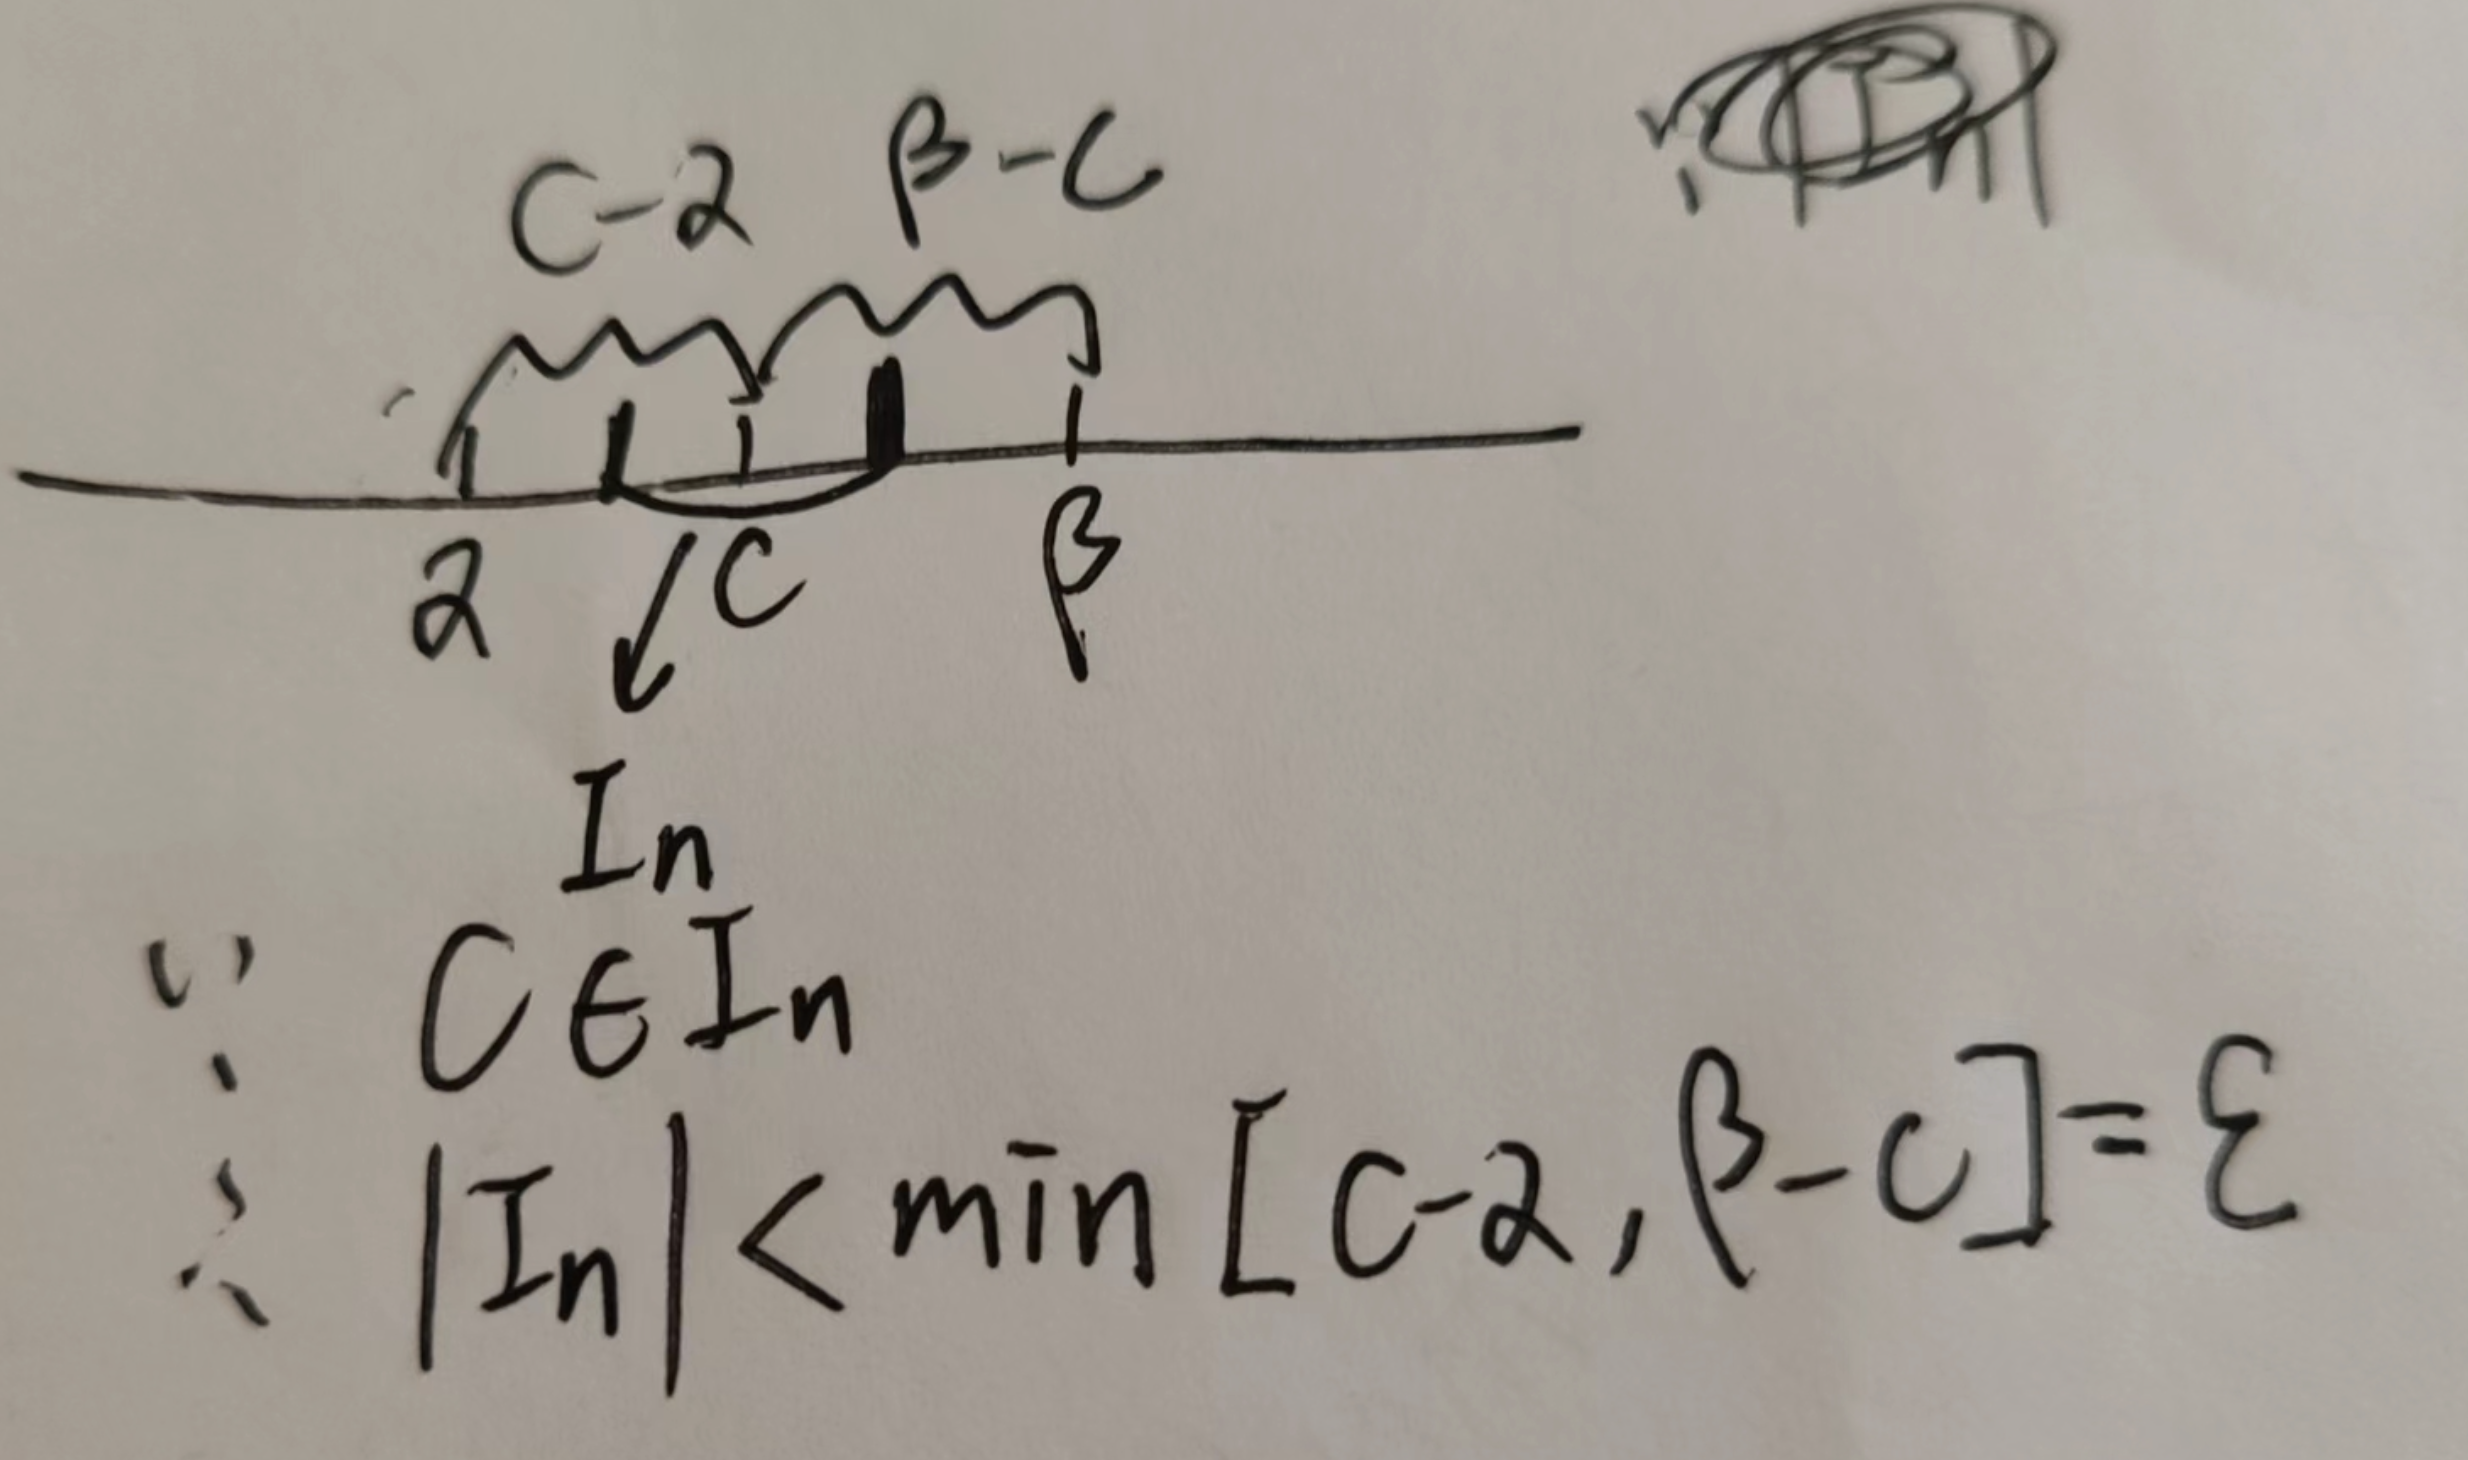 C-2 β-C
2 C β
In
∵ C∈In
|In| < min [C-2, β-C] = ε